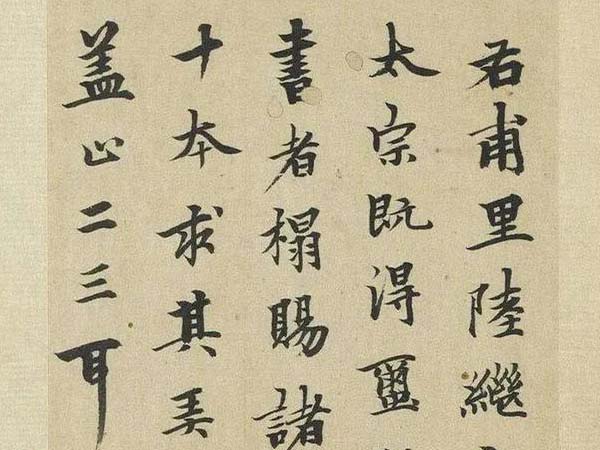 右甫里陸繼
太宗既得
書者榻賜諸
十本求其
蓋止二三耳